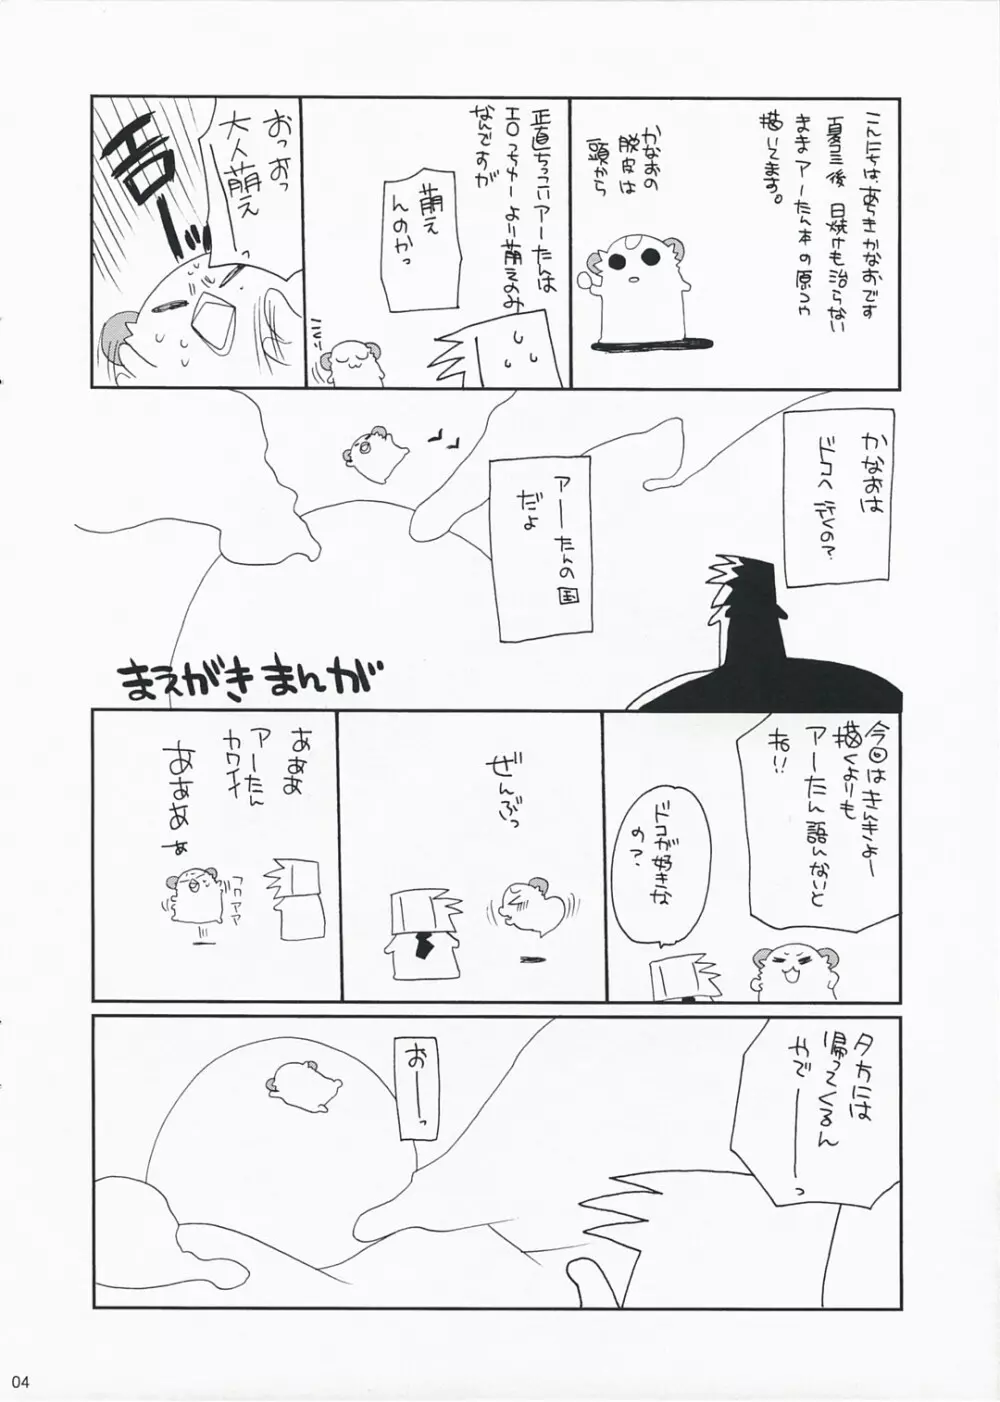 こんにちは、あらきかなおです
夏コミ後 日焼けも治らない
ままアーたん本の原つゃ
描いてます。
かなおの
脱皮は
頭から
正直ちっこいアーたんは
エロっちゅーより萌えのみ
なんですが
萌え
んのかっ
おっおっ
大人萌え
ーっ
エローッ
かなおは
ドコへ行くの?
アーたんの国
だよ
まえがきまんが
今回はきんきょー
描くよりも
アーたん語んないと
ね!!
ドコが好きな
の?
ぜんぶっ
あああ
アーたん
カワイイ
ああああ
フワアア
夕方には
帰ってくるん
やでーーっ
おーーっ
04